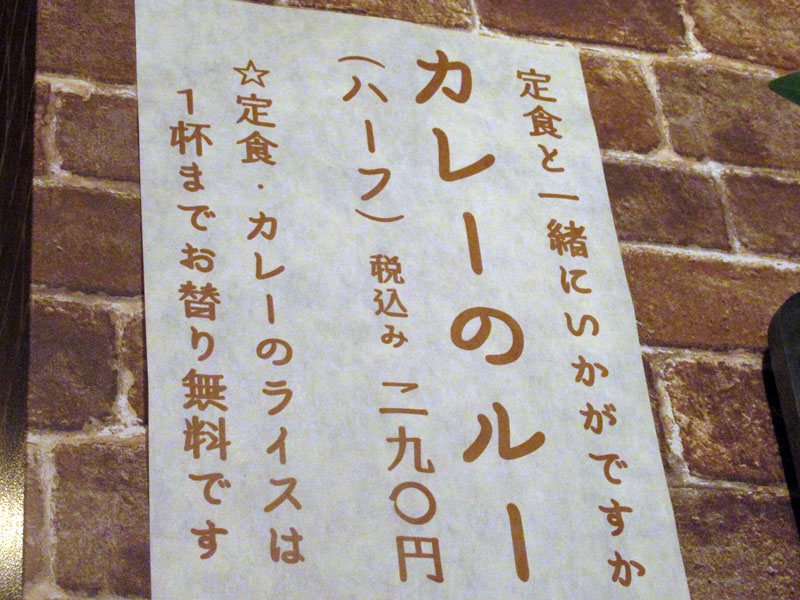 定食と一緒にいかがですか
カレーのルー
（ハーフ） 税込み 二九〇円
☆定食・カレーのライスは
１杯までお替り無料です